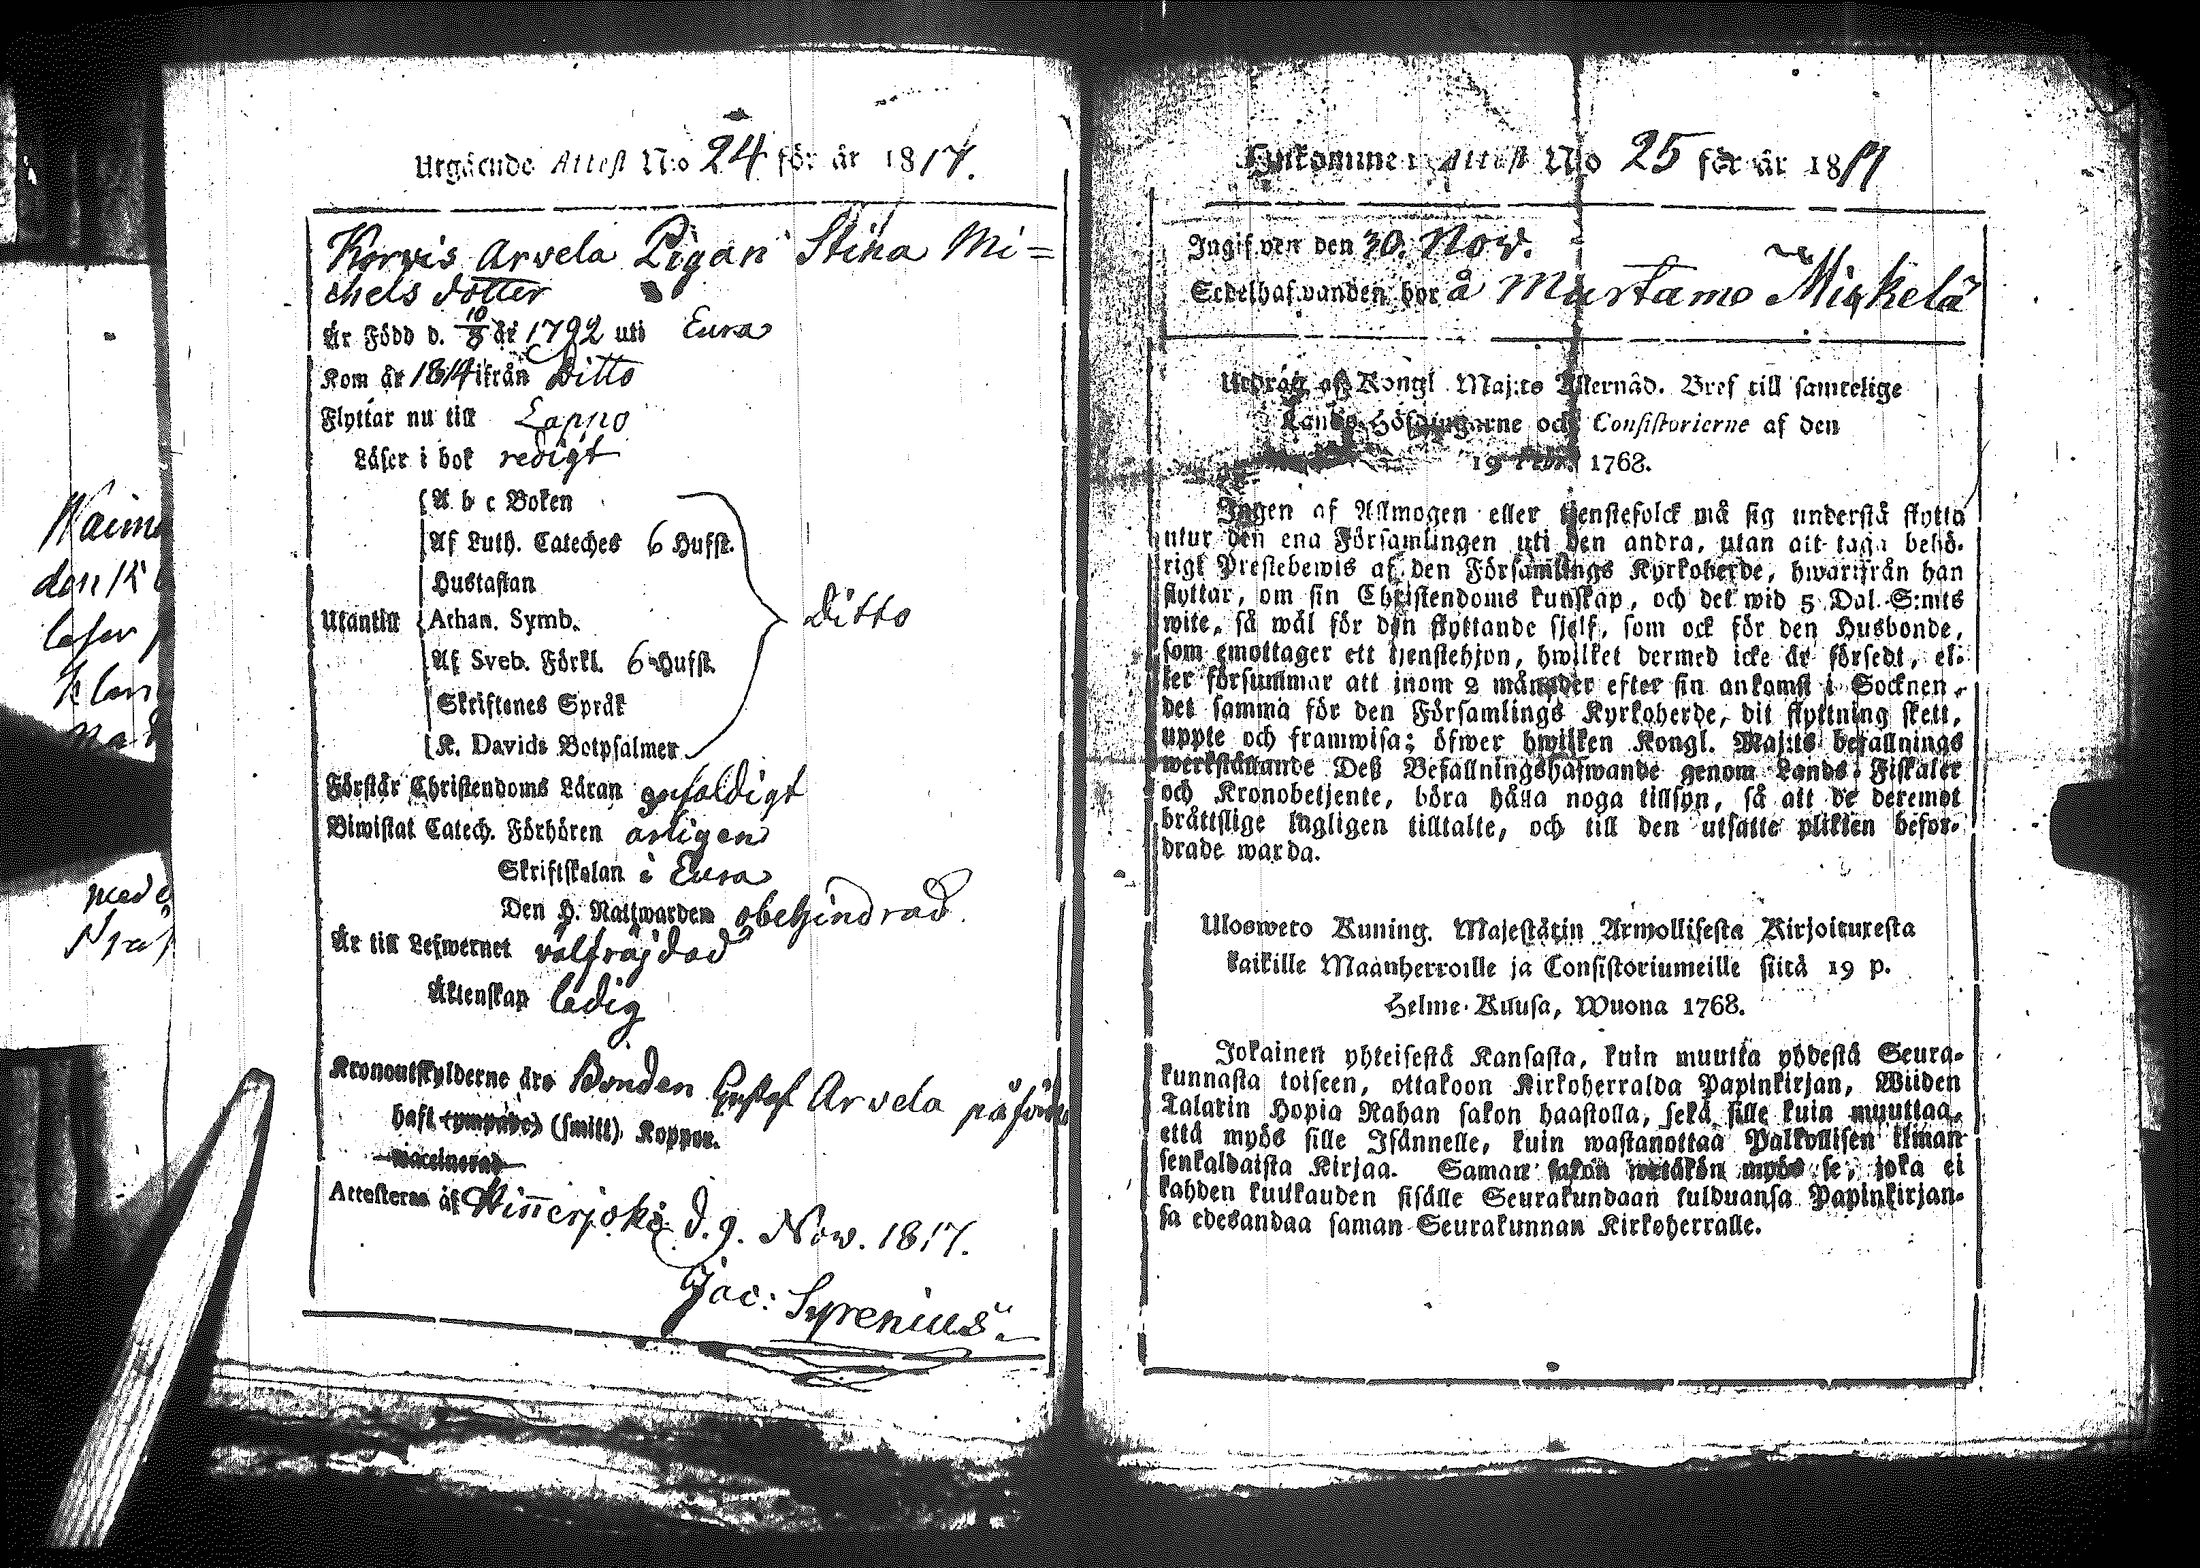 Utgående Attest N:o 24 för år 1817.
Korvis Arvela Pigan Stina Mi=
chels dotter
Är Född d. 10/8 år 1792 uti Eura
Kom år 1814 ifrån Ditto
Flyttar nu till Lappo
Läser i bok redigt
A b c Boken
Af Luth. Cateches 6 Hufst.
Hustaflan
Utantill Athan. Symb. Ditto
Af Sveb. Förkl. 6 Hufst.
Skriftenes Språk
K. Davids Botpsalmer
Förstår Christendoms Läran enfaldigt
Biwistat Catech. Förhören årligen
Skriftskolan i Eura
Den H. Nattwarden obehindrad.
Är till Lefwernet välfräjdad
Äktenskap ledig
Kronoutskylderne äro Bonden Gustaf Arvela påförde
haft ympade (smitt) Koppor.
vaccinerad
Attesteras af Hinnerjoki d. 9. Nov. 1817.
Jac: Syrenius.
Waim
den 15
leser
med
Inkommen Attest N:o 25 för år 1817
Ingifven den 30. Nov.
Sedelhafwanden bor å Murtamo Mickelä
Utdrag af Kongl. Maj:ts Åternåd. Bref till samtelige
Lands-Höfdingarne och Consistorierne af den
19 Febr. 1768.
Ingen af Allmogen eller tjenstefolck må sig understå flytta
utur den ena Församlingen uti den andra, utan att taga behö-
rigt Prestebewis af den Församlings Kyrkoherde, hwarifrån han
flyttar, om sin Christendoms kunskap, och det wid 5 Dal. S:mts
wite, så wäl för den flyttande sjelf, som ock för den Husbonde,
som emottager ett tjenstehjon, hwilket dermed icke är försedt, el-
ler försummar att inom 2 månader efter sin ankomst i Socknen,
det samma för den Församlings Kyrkoherde, dit flyttning skett,
uppte och framwisa; öfwer hwilken Kongl. Maj:ts befallnings
werkställande Deß Befallningshafwande genom Lands-Fiskaler
och Kronobetjente, böra hålla noga tillsyn, så att de deremot
bråttslige lagligen tilltalte, och till den utsatte plikten befor-
drade warda.
Ulosweto Kuning. Majestätin Armollisesta Kirjoituxesta
kaikille Maanherroille ja Consistoriumeille siitä 19 p.
Helme-Kuusa, Wuona 1768.
Jokainen yhteisestä Kansasta, kuin muutta yhdestä Seura-
kunnasta toiseen, ottakoon Kirkoherralda Papinkirjan, Wiiden
Talarin Hopia Rahan sakon haastolla, sekä sille kuin muuttaa,
että myös sille Isännelle, kuin wastanottaa Palkollisen ilman
senkaldaista Kirjaa. Saman sakon wetäkön myös se, joka ei
kahden kuukauden sisälle Seurakundaan tulduansa Papinkirjan-
sa edesandaa saman Seurakunnan Kirkoherralle.